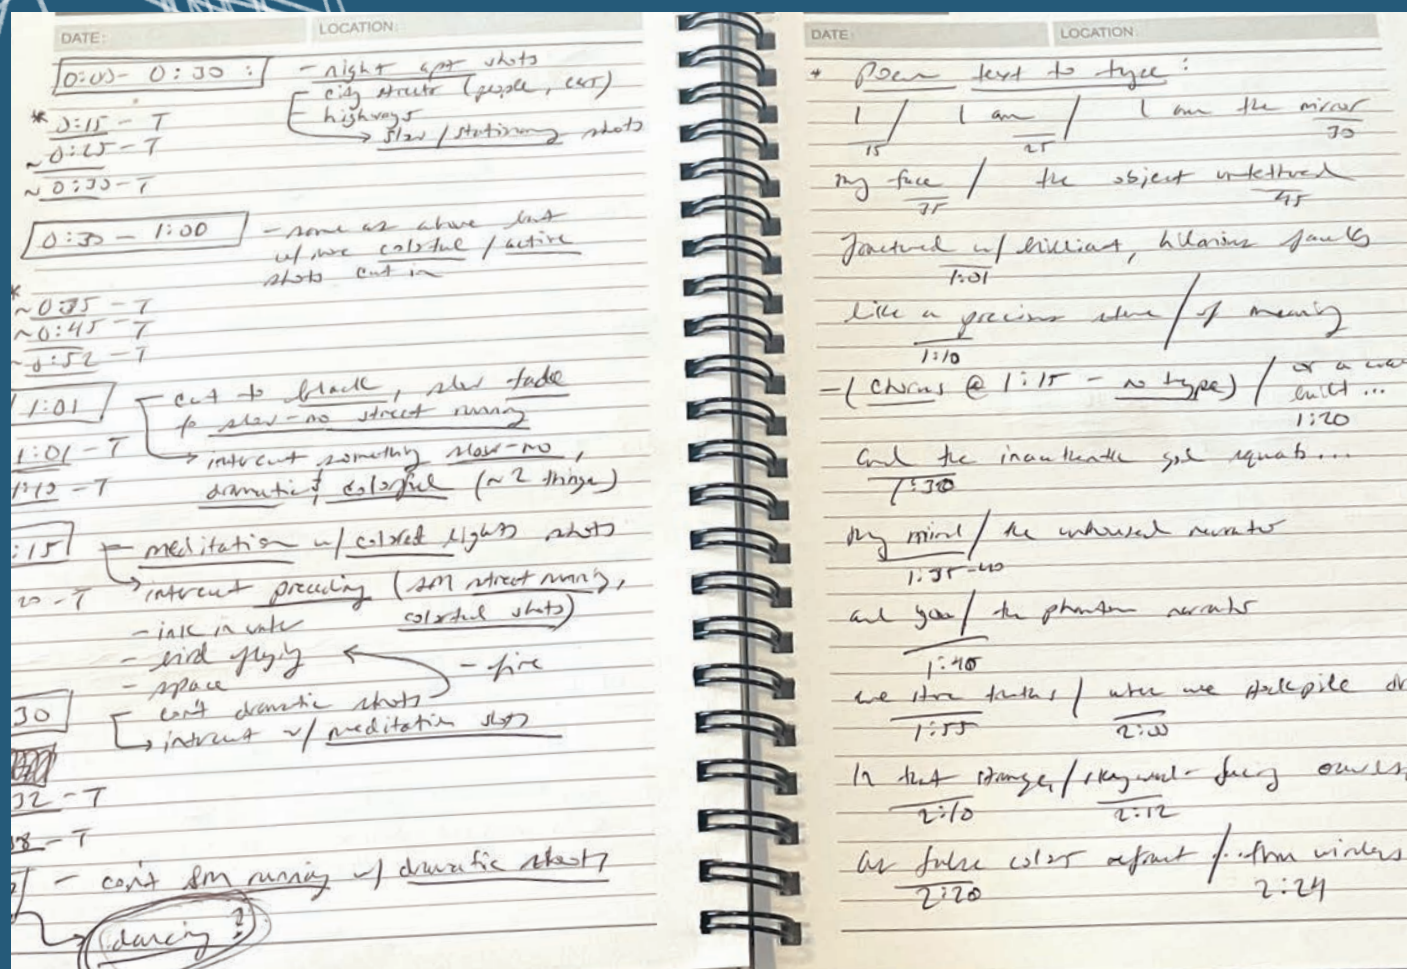 DATE: LOCATION:
0:00 - 0:30 : - night apt shots
city streets (people, cars)
* 0:15 - T highways
~ 0:25 - T → slow / stationary shots
~ 0:30 - T
0:30 - 1:00 - same as above but
w/ more colorful / active
shots cut in
*
~ 0:35 - T
~ 0:45 - T
~ 0:52 - T
1:01 cut to black, slow fade
to slow-mo street running
1:01 - T → intercut something slow-mo,
1:10 - T dramatic & colorful (~ 2 things)
:15 meditation w/ colored lights shots
20 - T → intercut preceding (SM street running,
- ink in water colorful shots)
- bird flying - fire
- space
30 con't dramatic shots
→ intercut w/ meditation shots
32 - T
38 - T
- con't SM running w/ dramatic shots
→ dancing ?
DATE: LOCATION:
* Poem text to type :
I / I am / I am the mirror
15 25 30
my face / the object untethered
35 45
fractured w/ brilliant, hilarious faults
1:01
like a precious stone / of meaning
1:10
- ( Chorus @ 1:15 - no type) / or a
built ...
1:20
and the inauthentic god squats ...
1:30
my mind / the unhoused narrator
1:35-40
and you / the phantom narrator
1:40
we store truths / where we stockpile
1:55 2:00
In that strange, / skyward-facing
2:10 2:12
as false color refract / ... from
2:20 2:24